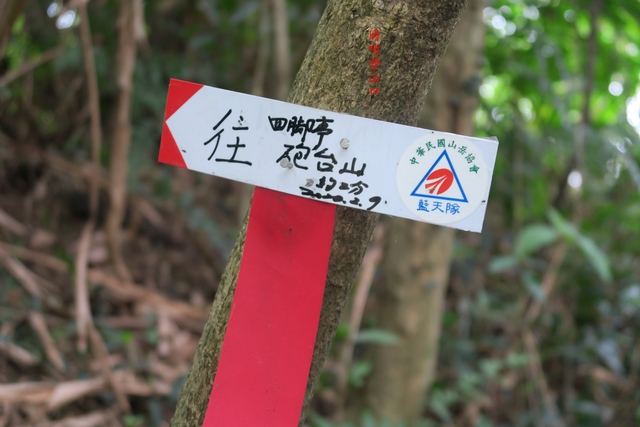 往
四腳亭
砲台山
約2分
2020.2.9
中華民國山岳協會
藍天隊